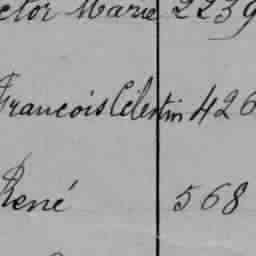 ctor Marie 2239
François Célestin 426
René 568